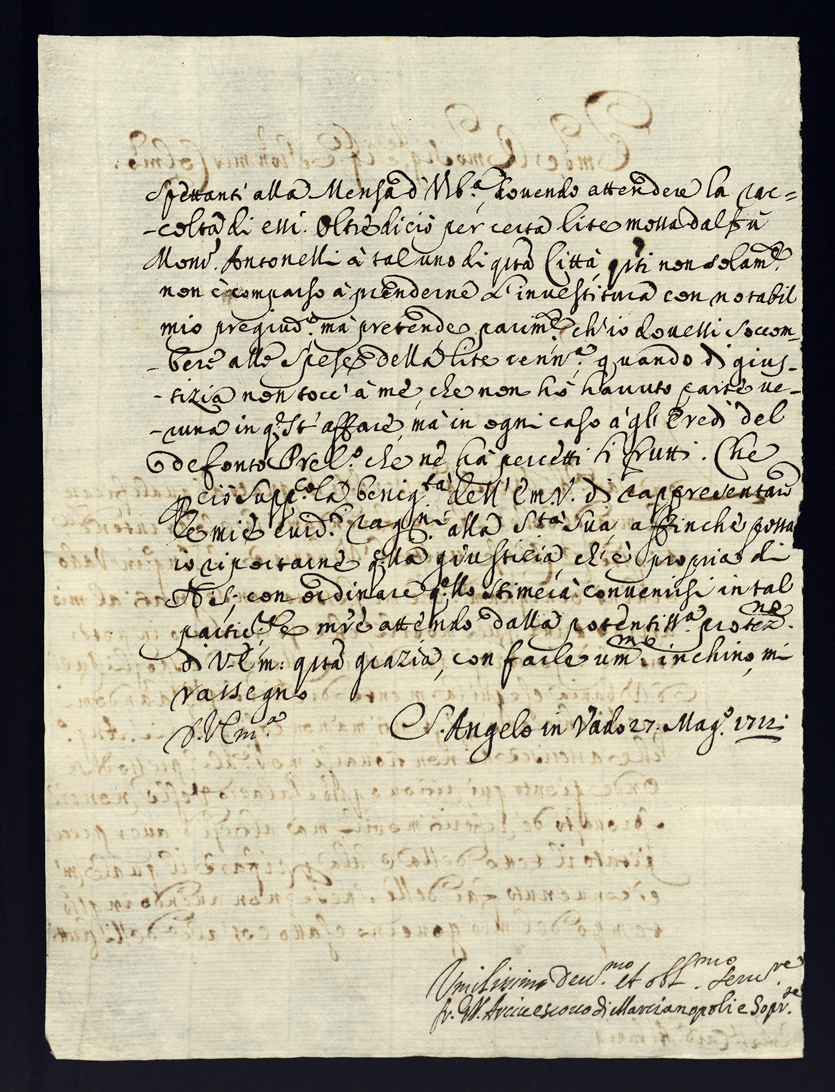 spettanti alla Mensa d'Urb.ª, dovendo attendere la rac=
-colta di essi. Oltre di ciò per certa lite mossa dal fù
Mons.r Antonelli à taluno di q.ta Città, q.sti non solam.te
non è comparso à prenderne l'investitura con notabil
mio pregiud.º mà pretende parim.te ch'io dovessi soccom-
-bere alle spese della lite, quando di gius-
-tizia non tocc' à mè, che non hò havuto parte ve-
-runa in q.st' affare, mà in ogni caso à gli Eredi del
Defonto Prel.º che nè hà percetti li frutti. Che
p ciò supp.co la benig.tà dell' Em.V. di rappresentare
le mie evid.ti ragni alla S.tà Sua, affinche possa
io riportarne q.lla giustizia ch'è propria di
con ordinare q.llo stimerà convenirsi in tal
partic.re e mentre attendo dalla potentiss.ª protez.ne
di V. Em: q.ta grazia, con facile um.mo inchino, mi
rassegno
D. V. Em.ª
S. Angelo in Vado 27. Mag.º 1712.
Umilissimo Dev.mo et obl.mo Serv.re
fr. Arcivescovo di Marcianopoli e Sopr.te